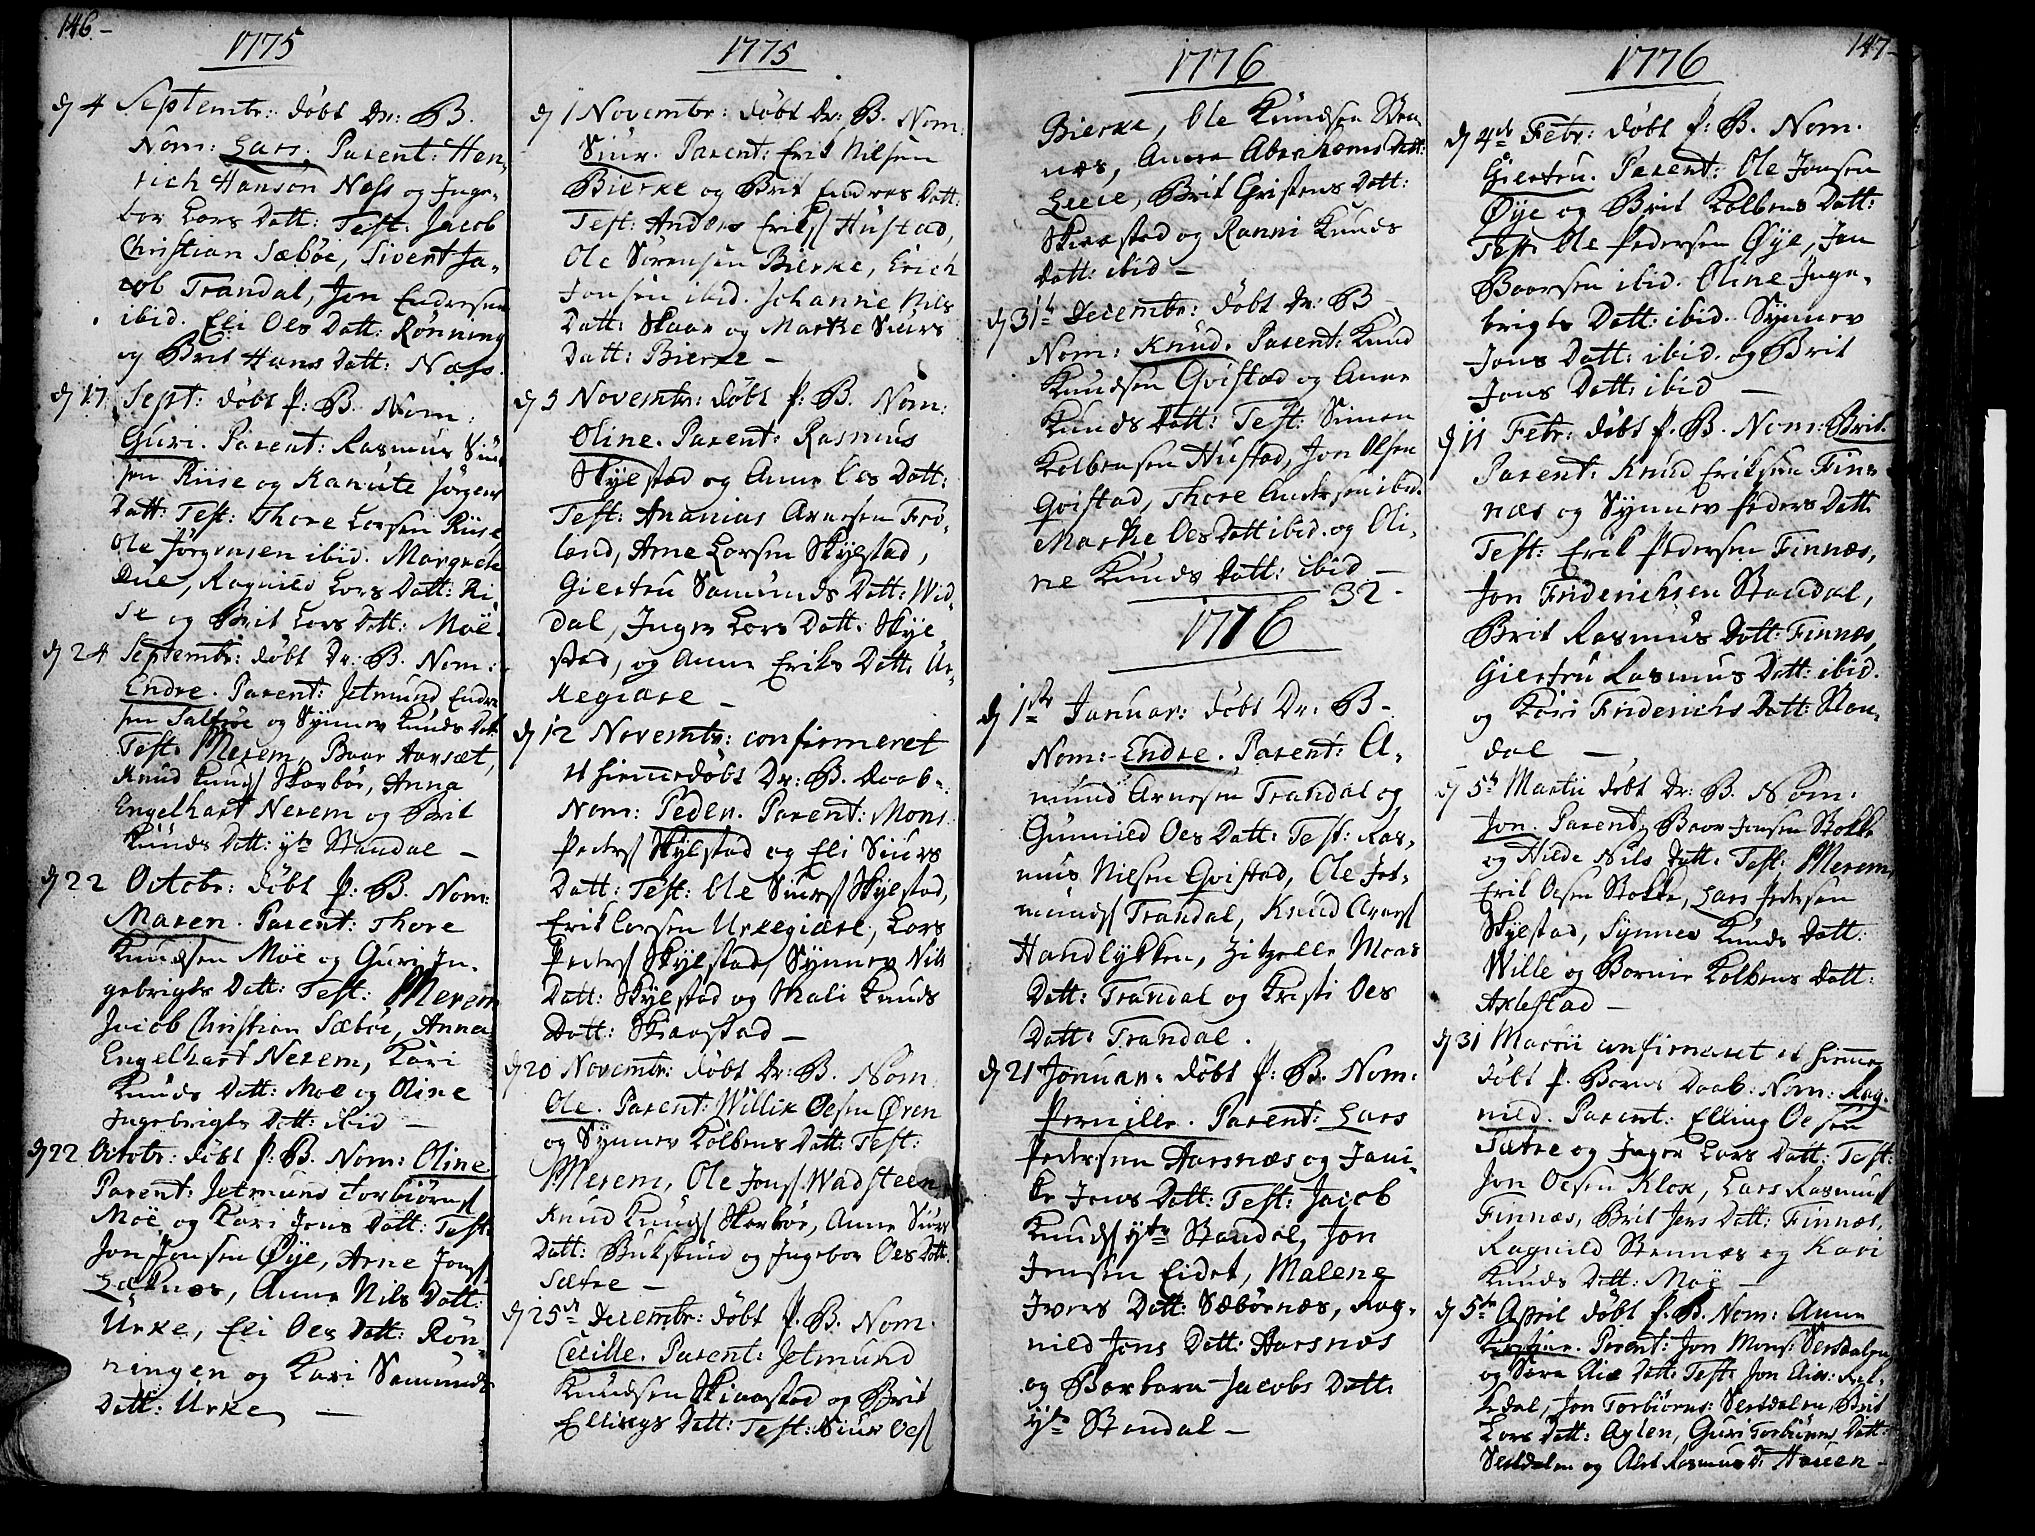 146.-
1775
dỹ 4 Septembr: døbt Dr: B.
Nom: Lars. Parent: Hen-
rich Hanson Næss og Inge-
bor Lars Datt: Test: Jacob
Christian Sæbøe, Sivert Ja-
cob Trandal, Jon Endresen
ibid. Eli Oes Datt: Rønning
og Brit Hans Datt: Næss.
dỹ 17 Sept: døbt P: B. Nom:
Guri. Parent: Rasmus Siur
sen Riise og Kanute Jørgens
Datt: Test: Thore Larsen Riise
Ole Jørgensen ibid. Margrete
Due, Ragnild Lars Datt: Ri
se og Brit Lars Datt: Moe.
dỹ 24 Septembr: døbt Dr: B. Nom:
Endre. Parent: Jetmund Endre
sen Saltrøe og Synnev Knuds Datt
Test: Merem, Baar Aarsæt,
Knud Knuds Skorbøe, Anna
Engelhart Nerem og Brit
Knuds Datt: yt: Standal —
dỹ 22 Octobr: døbt P: B. Nom:
Maren. Parent: Thore
Knudsen Moe og Guri In-
gebrigts Datt: Test: Merem
Jacob Christian Sæbøe, Anna
Engelhart Nerem, Kari
Knuds Datt: Moe og Oline
Ingebrigts Datt: ibid —
dỹ 22 Octobr: døbt P: B. Nom: Oline
Parent: Jetmund Torbiørns
Moe og Kari Jons Datt: Test:
Jon Jonsen Øye, Arne Jons
Læknes, Anne Nils Datt:
Urke, Eli Oes Datt: Røn-
ningen og Kari Samunds
Datt: Urke —
1775
dỹ 1 Novembr: døbt Dr: B. Nom:
Siur. Parent: Erik Nilsen
Bierke og Brit Endres Datt:
Test: Anders Eriks Hustad,
Ole Sørensen Bierke, Erich
Jonsen ibid. Johanne Nils
Datt: Skaar og Marte Siurs
Datt: Bierke —
dỹ 3 Novembr: døbt P: B. Nom:
Oline. Parent: Rasmus
Skylstad og Anne Oes Datt:
Test: Ananias Arnesen Frø-
land, Arne Larsen Skylstad,
Giertru Samunds Datt: Wid-
dal, Inger Lars Datt: Skyl
stad, og Anne Eriks Datt: Ur-
kegiære —
dỹ 12 Novembr: confirmeret
et hiemmedøbt Dr: B. Daab-
Nom: Peder. Parent: Mons
Peders Skylstad og Eli Siurs
Datt: Test: Ole Siurs Skylstad,
Erik Larsen Urkegiære, Lars
Peders Skylstad, Synnev Nils
Datt: Skylstad og Mali Knuds
Datt: Skiaastad —
dỹ 20 Novembr: døbt Dr: B. Nom:
Ole. Parent: Willik Oesen Øren
og Synnev Kolbens Datt: Test:
Merem, Ole Jons Wadsteen
Knud Knuds Skorbøe, Anne Siurs
Datt: Buksund og Ingebor Oes Datt:
Sætre —
dỹ 25de Decembr: døbt P: B. Nom.
Cecille. Parent: Jetmund
Knudsen Skiaastad og Brit
Ellings Datt: Test: Siur Oes
1776
Bierke, Ole Knudsen Sten
næs, Anne Abrahams Datt:
Leere, Brit Christens Datt:
Skiaastad og Ranni Knuds
Datt: ibid —
dỹ 31te Decembr: døbt Dr: B —
Nom: Knud. Parent: Knud
Knudsen Qvistad og Anne
Knuds Datt: Test: Simon
Kolbensen Hustad, Jon Olsen
Qvistad, Thore Andersen ibid.
Marte Oes Datt ibid. og Oli-
ne Knuds Datt: ibid —
32.
1776
dỹ 1ste Januar: døbt Dr: B —
Nom: Endre. Parent: A-
mund Arnesen Trandal og
Gunnild Oes Datt: Test: Ras-
mus Nilsen Qvistad, Ole Jet-
munds Trandal, Knud Arnes
Handlykken, Zitzelle Mons
Datt: Trandal og Kristi Oes
Datt: Trandal.
dỹ 21 Januar: døbt P: B. Nom:
Pernille. Parent: Lars
Pedersen Aarsnæs og Jani-
ke Jens Datt: Test: Jacob
Knuds yte Standal, Jon
Jensen Eidet, Malene
Ivers Datt: Sæbønæs, Rag-
nild Jons Datt: Aarsnæs
og Barbara Jacobs Datt:
yte Standal —
1776
147-
dỹ 4de Febr: døbt P: B. Nom.
Giertru. Parent: Ole Jonsen
Øye og Brit Kolbens Datt:
Test: Ole Pedersen Øye, Jon
Baarsen ibid. Oline Inge-
brigts Datt: ibid. Synnev
Jons Datt: ibid. og Brit
Jons Datt: ibid —
dỹ 11 Febr: døbt P. B. Nom: Brit.
Parent: Knud Eriksen Fin-
næs og Synnev Peders Datt
Test: Erik Pedersen Finnæs,
Jon Friderichsen Standal,
Brit Rasmus Datt: Finnæs,
Giertru Rasmus Datt: ibid.
og Kari Friderichs Datt: Stan-
dal —
dỹ 5te Martii døbt Dr: B. Nom:
Jon. Parent: Baar Jonsen Stokke
og Hilde Nils Datt: Test: Merem,
Erik Oesen Stokke, Lars Pedersen
Skylstad, Synnev Knuds Datt:
Wille og Bornie Kolbens Datt:
Axlestad —
dỹ 31 Martii confirmeret et hiemme
døbt P. Barns Daab: Nom: Rag-
nild. Parent: Elling Oesen
Sætre og Inger Lars Datt: Test:
Jon Oesen Klok, Lars Rasmus
Finnæs, Brit Jens Datt: Finnæs,
Ragnild Stennæs og Kari
Knuds Datt: Moe —
dỹ 5te April døbt P. B. Nom: Anne
Parent: Jon Mons: Sersdalen
og Sara Datt: Test: Jon
dal, Jon Torbiørns: Sersdalen, Brit
Lars Datt: Aylen, Guri Torbiørns Datt:
Sersdalen og Rasmus D: Hauen —